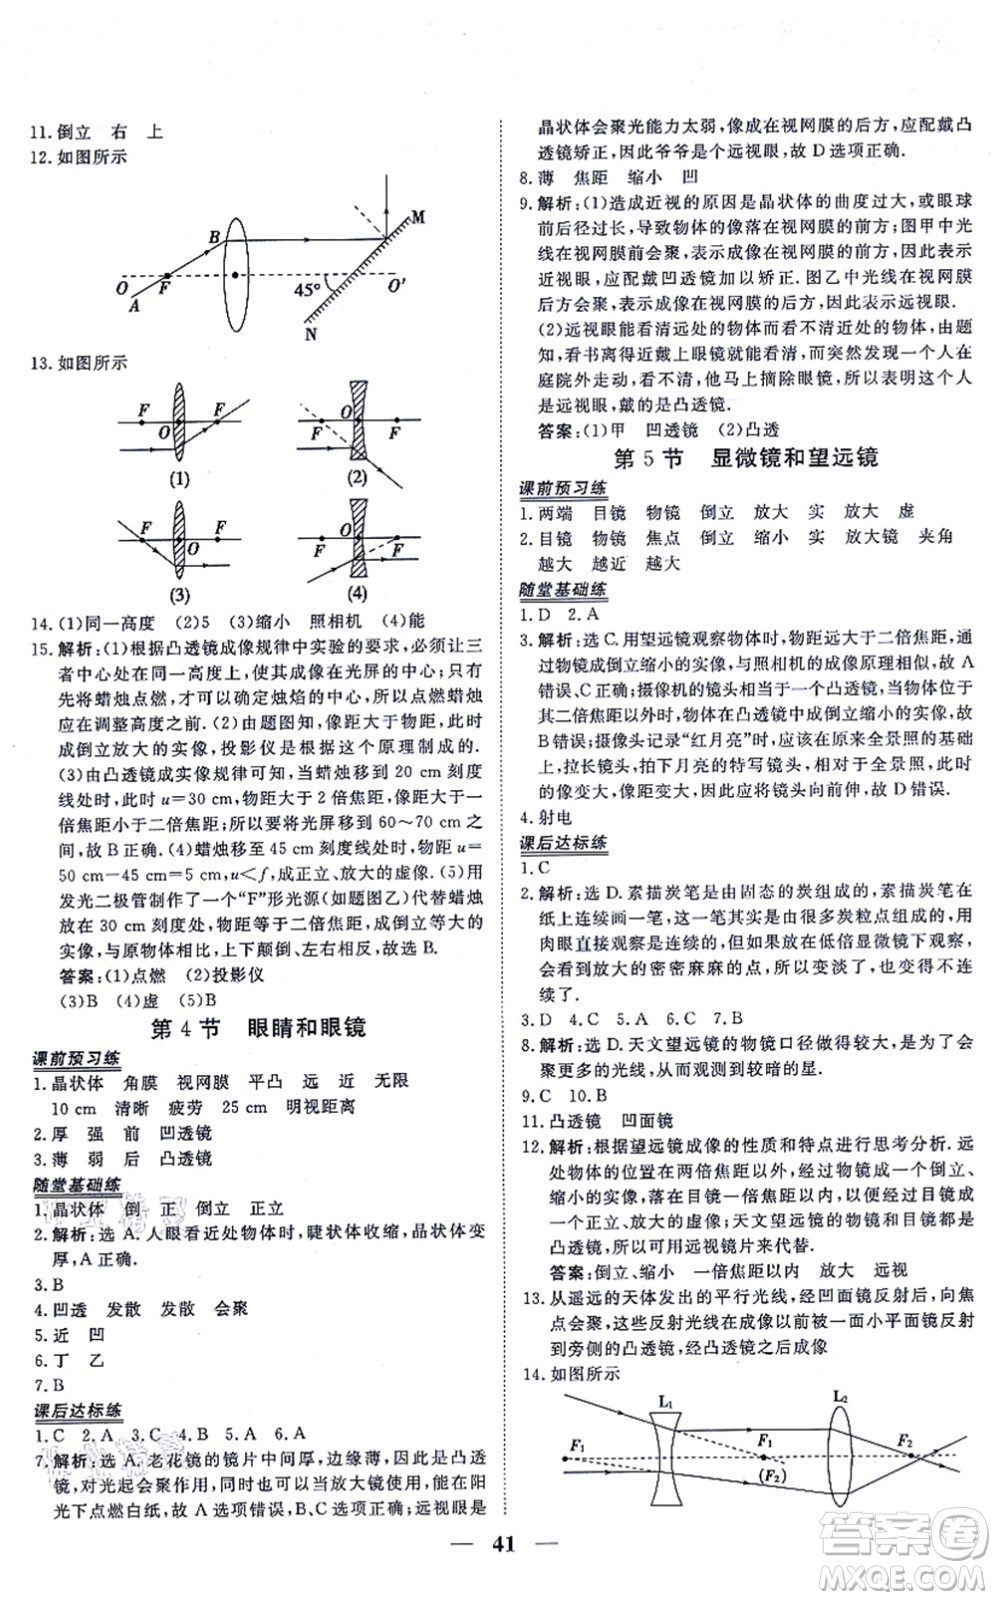 11. 倒立 右 上
12. 如图所示
M
B
O
F
A
45°
O′
N
13. 如图所示
F
O
F
(1)
O
F
F
(2)
F
O
F
(3)
O
F
F
(4)
14. (1)同一高度 (2)5 (3)缩小 照相机 (4)能
15. 解析:(1)根据凸透镜成像规律中实验的要求,必须让三
者中心处在同一高度上,使其成像在光屏的中心;只有
先将蜡烛点燃,才可以确定烛焰的中心,所以点燃蜡烛
应在调整高度之前.(2)由题图知,像距大于物距,此时
成倒立放大的实像,投影仪是根据这个原理制成的.
(3)由凸透镜成实像规律可知,当蜡烛移到 20 cm 刻度
线处时,此时 u=30 cm,物距大于 2 倍焦距,像距大于一
倍焦距小于二倍焦距;所以要将光屏移到 60～70 cm 之
间,故 B 正确.(4)蜡烛在 45 cm 刻度线处时,物距 u=
50 cm-45 cm=5 cm,u<f,成正立、放大的虚像.(5)用
发光二极管制作了一个“F”形光源(如题图乙)代替蜡烛
放在 30 cm 刻度处,物距等于二倍焦距,成倒立等大的
实像,与原物体相比,上下颠倒、左右相反,故选 B.
答案:(1)点燃 (2)投影仪
(3)B (4)虚 (5)B
第 4 节 眼睛和眼镜
课前预习练
1. 晶状体 角膜 视网膜 平凸 远 近 无限
10 cm 清晰 疲劳 25 cm 明视距离
2. 厚 强 前 凹透镜
3. 薄 弱 后 凸透镜
随堂基础练
1. 晶状体 倒 正 倒立 正立
2. 解析:选 A. 人眼看近处物体时,睫状体收缩,晶状体变
厚,A 正确.
3. B
4. 凹透 发散 发散 会聚
5. 近 凹
6. 丁 乙
7. B
课后达标练
1. C 2. A 3. C 4. B 5. A 6. A
7. 解析:选 A. 老花镜的镜片中间厚,边缘薄,因此为凸透
镜,对光起会聚作用,同时也可以当放大镜使用,能在阳
光下点燃白纸,故 A 选项错误,B、C 选项正确;远视眼是
晶状体会聚光能力太弱,像成在视网膜的后方,应配戴凸
透镜矫正,因此爷爷是个远视眼,故 D 选项正确.
8. 薄 焦距 缩小 凹
9. 解析:(1)造成近视的原因是晶状体的曲度过大,或眼球
前后径过长,导致物体的像落在视网膜的前方;图甲中光
线在视网膜前会聚,表示成像在视网膜的前方,所以表示
近视眼,应配戴凹透镜加以矫正.图乙中光线在视网膜后
方会聚,表示成像在视网膜的后方,因此表示远视眼.
(2)远视眼能看清远处的物体而看不清近处的物体,由题
知,看书离得近戴上眼镜能看清,因此,近处有问题;在
庭院外走动,看不清,他马上摘除眼镜,所以表明这个人
是远视眼,戴的是凸透镜.
答案:(1)甲 凹透镜 (2)凸透
第 5 节 显微镜和望远镜
课前预习练
1. 两端 目镜 物镜 倒立 放大 实 放大 虚
2. 目镜 物镜 焦点 倒立 缩小 实 放大镜 夹角
越大 越近 越大
随堂基础练
1. D 2. A
3. 解析:选 C. 用望远镜观察物体时,物距远大于二倍焦距,
物镜成倒立缩小的实像,与照相机的成像原理相同,故 A
错误;摄像机的镜头相当于一个凸透镜,当物体位于
其二倍焦距以外时,物体在凸透镜中成倒立缩小的实像,
故 B 错误.摄像头记录“红月亮”时,应在原来全景照的基础
上,拉长镜头,拍下月亮的特写镜头,故 C 正确;此时
的像变大,故像距变大,因此应该将镜头向前伸,故 D 错误.
4. 射电
课后达标练
1. C
2. 解析:选 D. 素描炭笔是由固态的炭组成的,素描炭笔在
纸上连续画一笔,实质上是由很多炭粒点组成的,用
肉眼直接观察是连续的,但是放在低倍显微镜下观察,
会看到放大的密密麻麻的点,所以变淡了,也变得不连
续了.
3. D 4. C 5. A 6. C 7. B
8. 解析:选 D. 天文望远镜的物镜口径做得较大,是为了会
聚更多的光线,从而观测到较暗的星.
9. C 10. B
11. 凸透镜 凹面镜
12. 解析:根据望远镜成像的性质和特点进行思考分析.远
处物体的位置在两倍焦距以外,通过物镜成一个倒立、
缩小的实像,落在目镜一倍焦距以内,通过目镜再成一
个正立、放大的虚像;天文望远镜的物镜和目镜都是凸
透镜,所以可以用远视镜片来代替.
答案:倒立、缩小 一倍焦距以内 放大 远视
13. 从遥远的天体发出的平行光线,经凹面镜反射后,向焦
点会聚,这些反射光线在成像以前被一面小平面镜反射
到旁侧的凸透镜,经凸透镜之后成像
14. 如图所示
L₁
L₂
F₁
F₁
(F₂)
F₂
41
答案圈
MXQE.COM